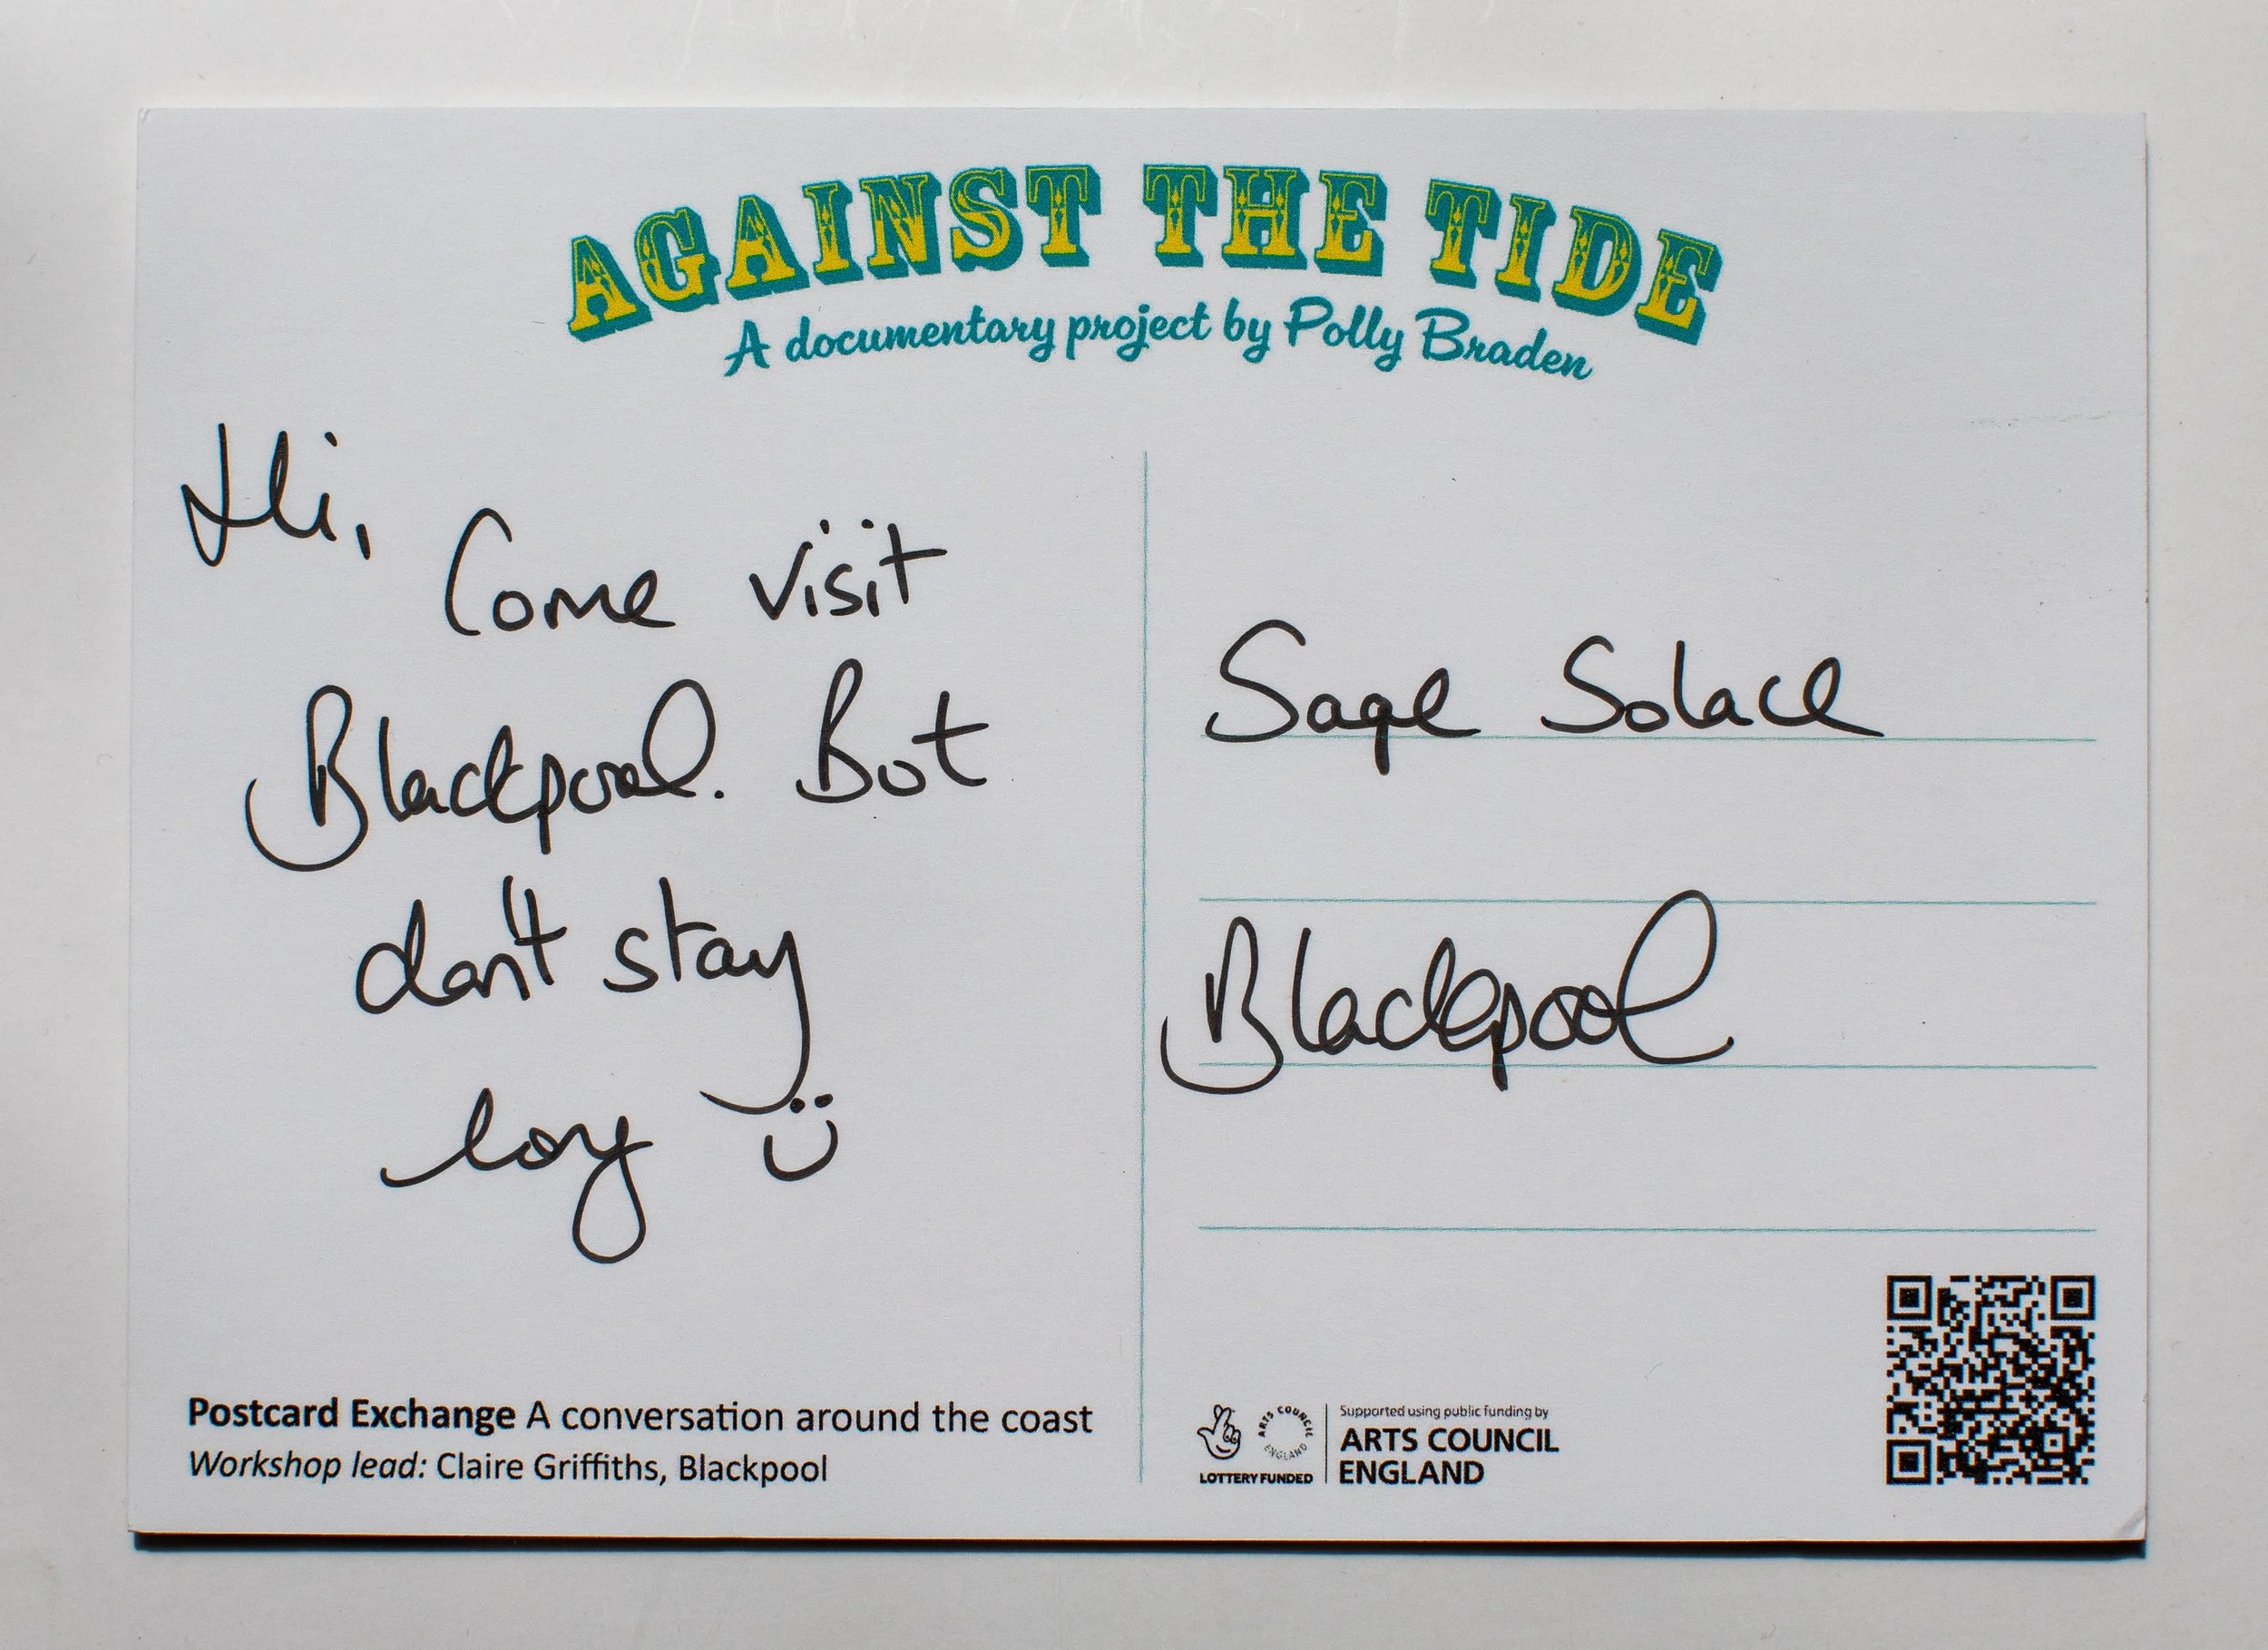 AGAINST THE TIDE
A documentary project by Polly Braden
Hi,
Come visit
Blackpool. But
don't stay
long
Sage Solace
Blackpool
Postcard Exchange A conversation around the coast
Workshop lead: Claire Griffiths, Blackpool
ARTS COUNCIL
ENGLAND
LOTTERY FUNDED
Supported using public funding by
ARTS COUNCIL
ENGLAND